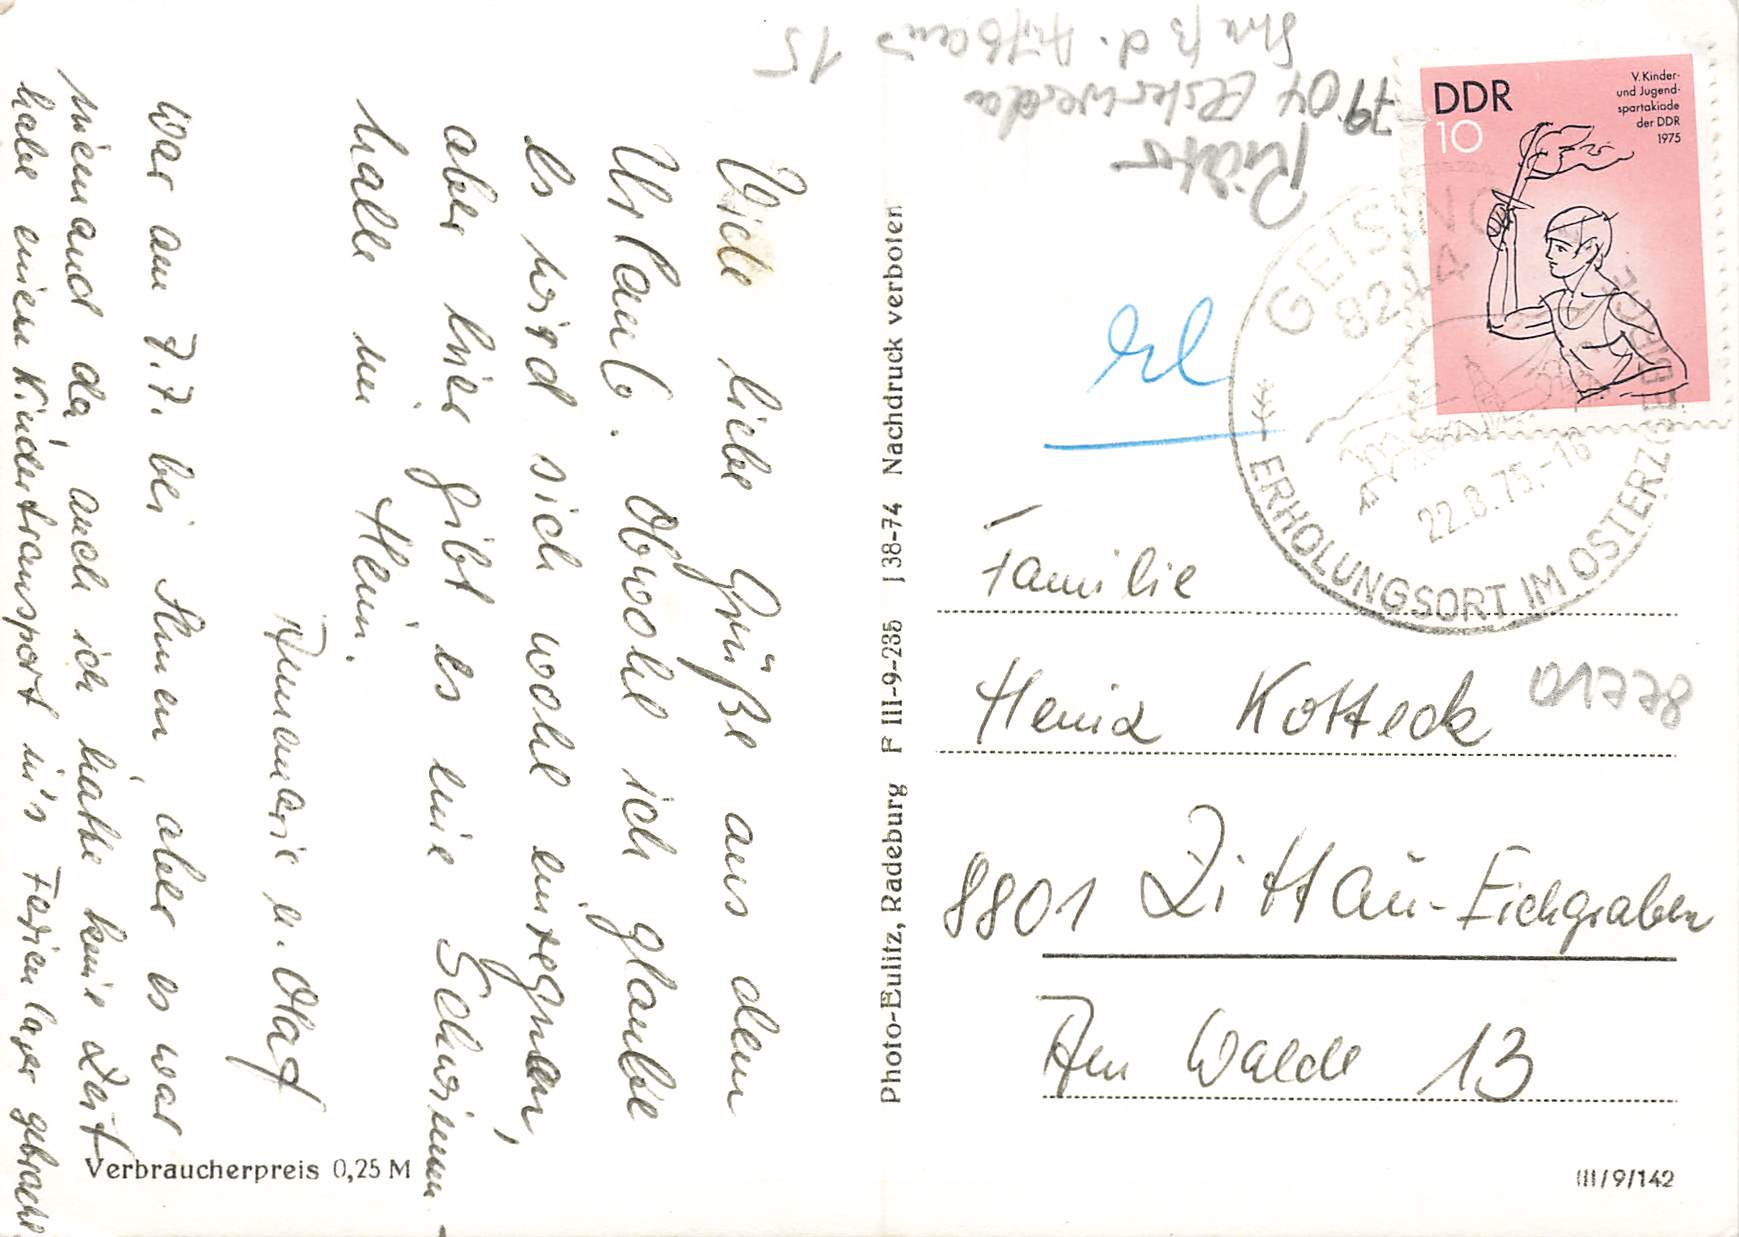 Viele liebe Grüße aus dem
Urlaub. Obwohl ich glaube
es wird sich wohl einregnen,
aber hier gibt es eine Schwimm-
halle im Heim.
Annemarie u. Olaf
War am 7.7. bei Ihnen, aber es war
niemand da, auch ich hatte keine Zeit
habe einen Kindertransport in's Ferienlager gebracht
Verbraucherpreis 0,25 M
Photo-Eulitz, Radeburg F III-9-285 J 38-74 Nachdruck verboten
Richter
7904 Elsterwerda
Str. d. Aufbaus 15
DDR
10
V. Kinder-
und Jugend-
spartakiade
der DDR
1975
GEISING
8244
22.8.75.-18
ERHOLUNGSORT IM OSTERZGEBIRGE
Familie
Heinz Kotteck
8801 Zittau-Eichgraben
Am Walde 13
III/9/142